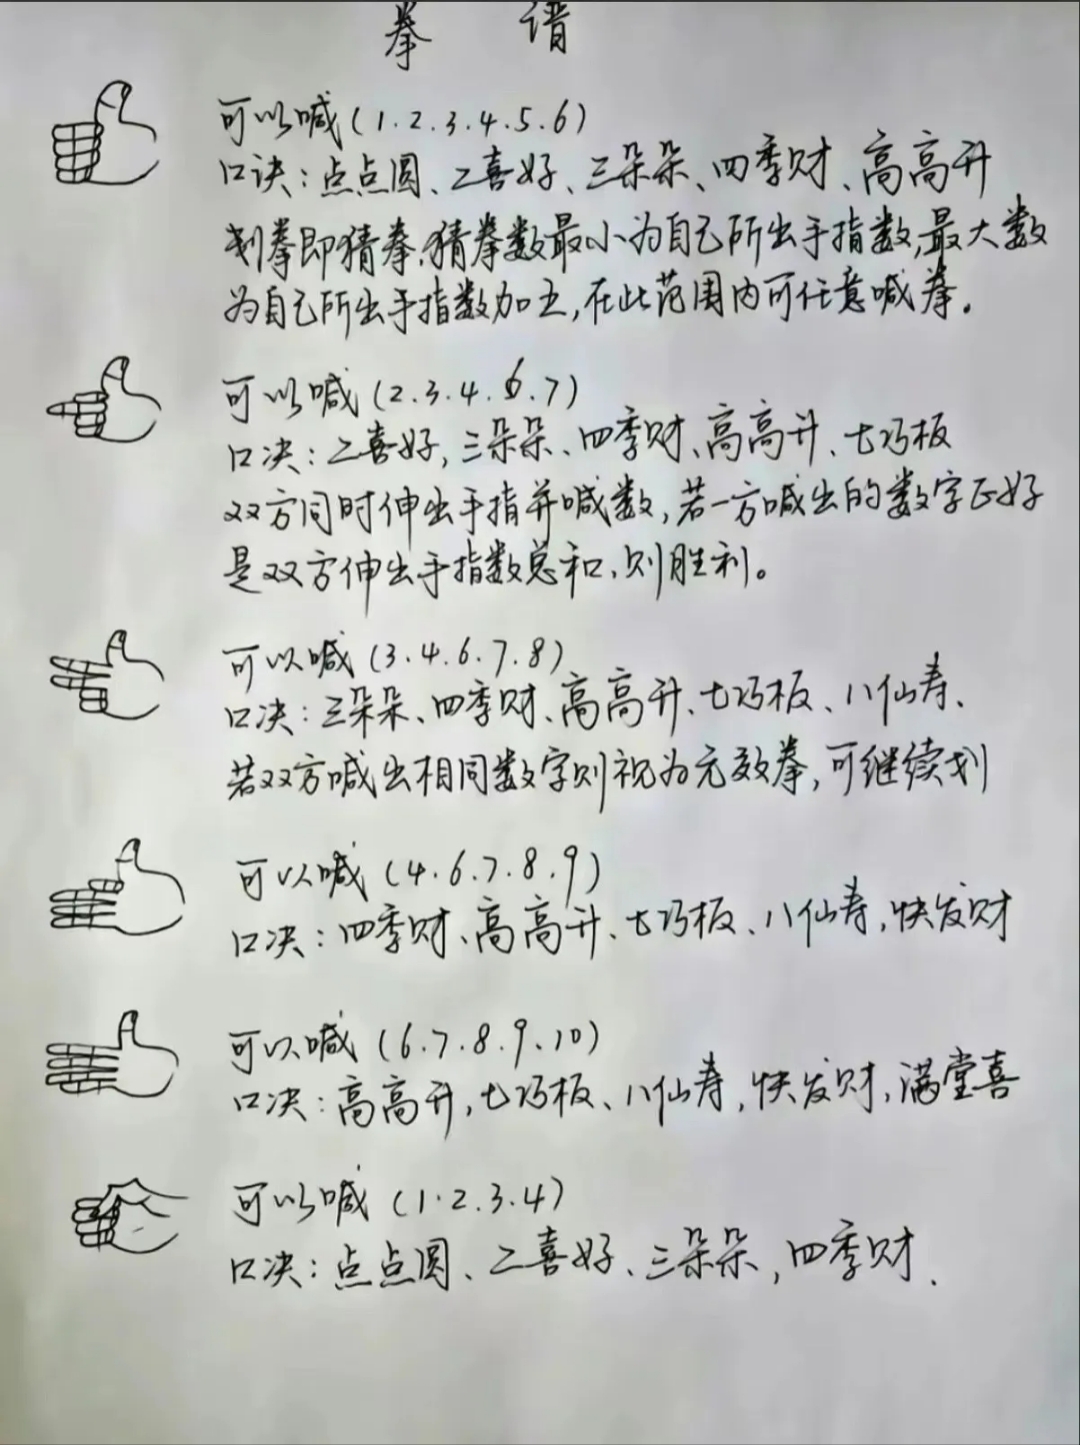 拳 谱
可以喊(1.2.3.4.5.6)
口诀:点点圆、二喜好、三朵朵、四季财、高高升
划拳即猜拳.猜拳数最小为自己所出手指数,最大数
为自己所出手指数加五,在此范围内可任意喊拳。
可以喊(2.3.4.6.7)
口决:二喜好,三朵朵、四季财、高高升、七巧板
双方同时伸出手指并喊数,若一方喊出的数字正好
是双方伸出手指数总和,则胜利。
可以喊(3.4.6.7.8)
口决:三朵朵、四季财、高高升、七巧板、八仙寿、
若双方喊出相同数字则视为无效拳,可继续划
可以喊(4.6.7.8.9)
口决:四季财、高高升、七巧板、八仙寿,快发财
可以喊(6.7.8.9.10)
口决:高高升,七巧板、八仙寿,快发财,满堂喜
可以喊(1.2.3.4)
口决:点点圆、二喜好、三朵朵,四季财、